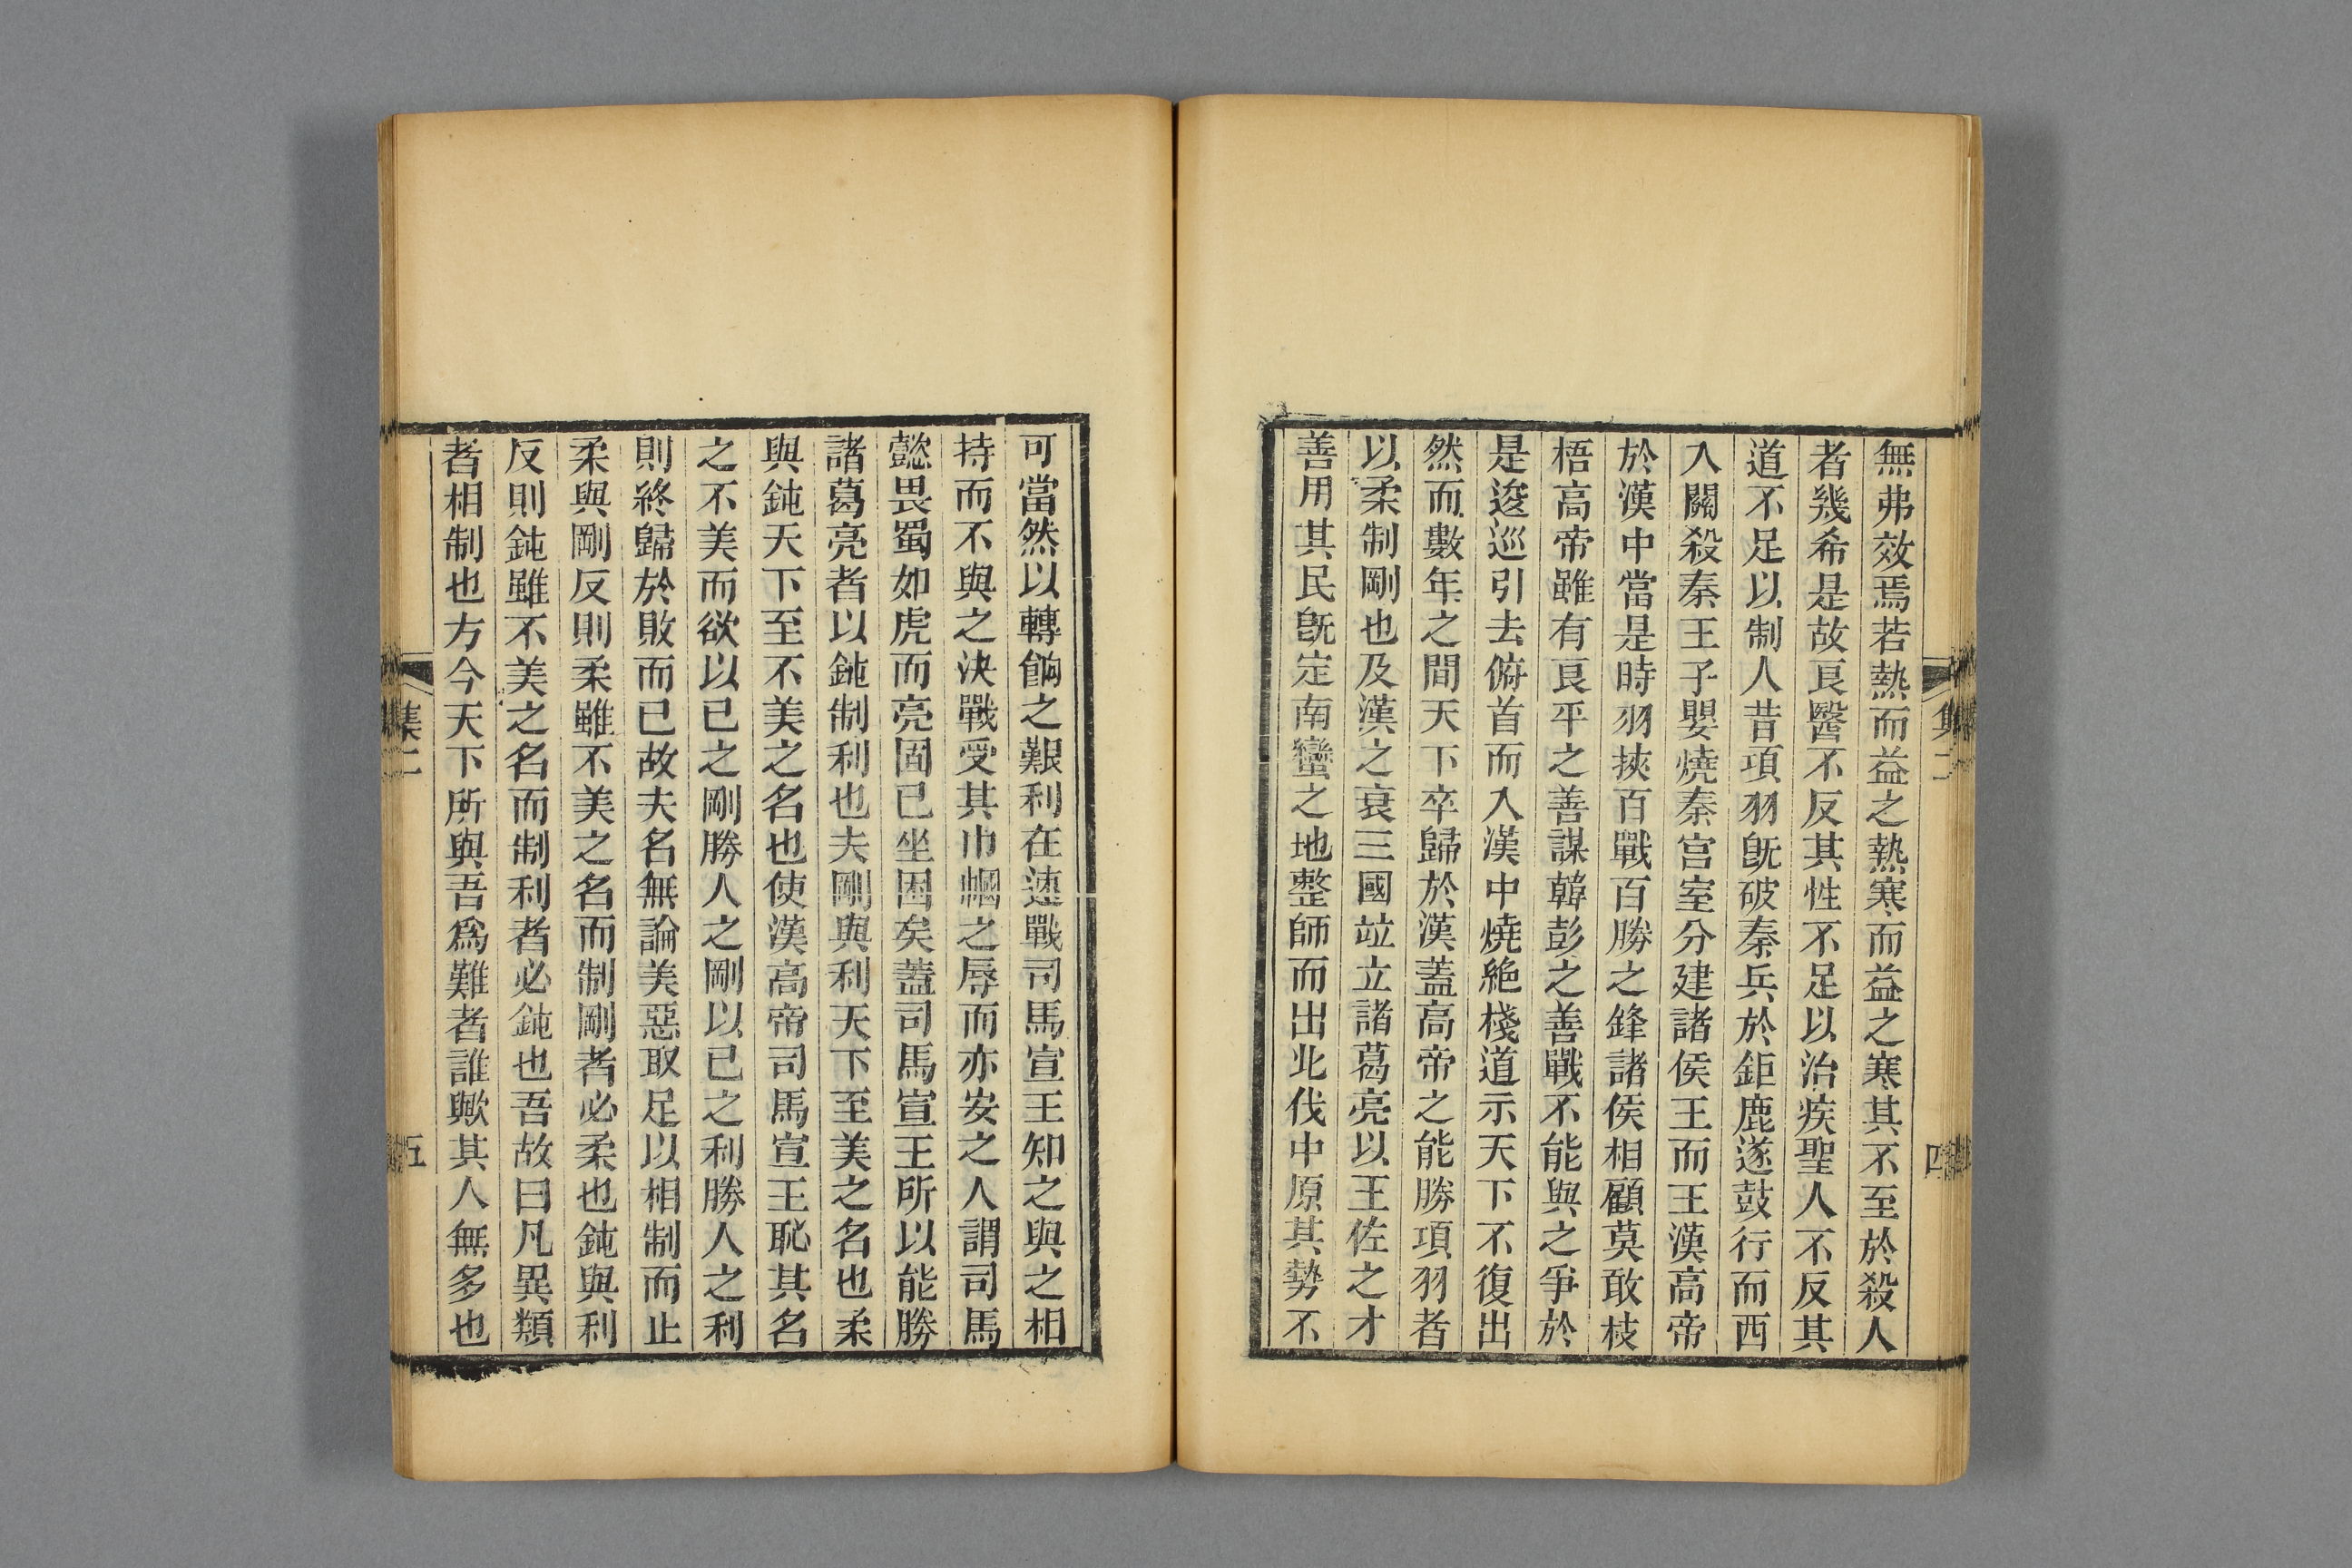 無弗效焉若熱而益之熱寒而益之寒其不至於殺人
者幾希是故良醫不反其性不足以治疾聖人不反其
道不足以制人昔項羽旣破秦兵於鉅鹿遂鼓行而西
入關殺秦王子嬰燒秦宮室分建諸侯王而王漢高帝
於漢中當是時羽挾百戰百勝之鋒諸侯相顧莫敢枝
梧高帝雖有良平之善謀韓彭之善戰不能與之爭於
是逡巡引去俯首而入漢中燒絶棧道示天下不復出
然而數年之間天下卒歸於漢蓋高帝之能勝項羽者
以柔制剛也及漢之衰三國竝立諸葛亮以王佐之才
善用其民旣定南蠻之地整師而出北伐中原其勢不
集二
四
可當然以轉餉之艱利在速戰司馬宣王知之與之相
持而不與之決戰受其巾幗之辱而亦安之人謂司馬
懿畏蜀如虎而亮固已坐困矣蓋司馬宣王所以能勝
諸葛亮者以鈍制利也夫剛與利天下至美之名也柔
與鈍天下至不美之名也使漢高帝司馬宣王恥其名
之不美而欲以已之剛勝人之剛以已之利勝人之利
則終歸於敗而已故夫名無論美惡取足以相制而止
柔與剛反則柔雖不美之名而制剛者必柔也鈍與利
反則鈍雖不美之名而制利者必鈍也吾故曰凡異類
者相制也方今天下所與吾爲難者誰歟其人無多也
集二
五